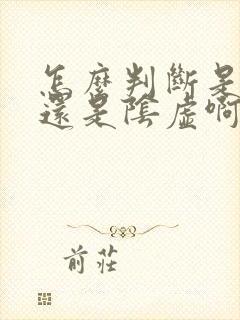 怎麼判斷是
還是陰虛啊
前莊